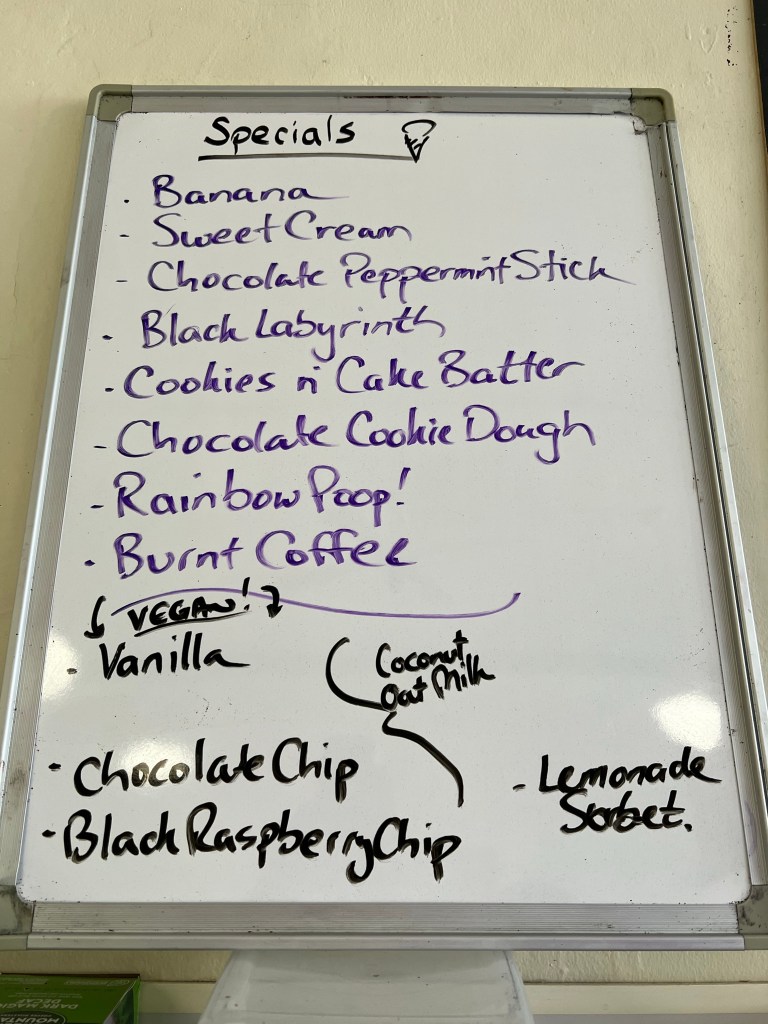 Specials
· Banana
- Sweet Cream
- Chocolate Peppermint Stick
· Black Labyrinth
· Cookies n' Cake Batter
- Chocolate Cookie Dough
- Rainbow Poop!
· Burnt Coffee
VEGAN!
- Vanilla
Coconut
Oat Milk
- Chocolate Chip
- Lemonade
Sorbet.
· Black Raspberry Chip
DARK MAGIC
DECAF
MOUNTA